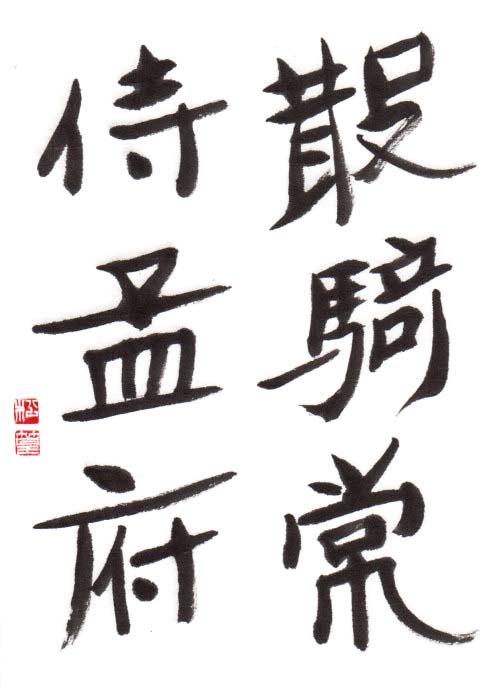 散騎常
侍孟府